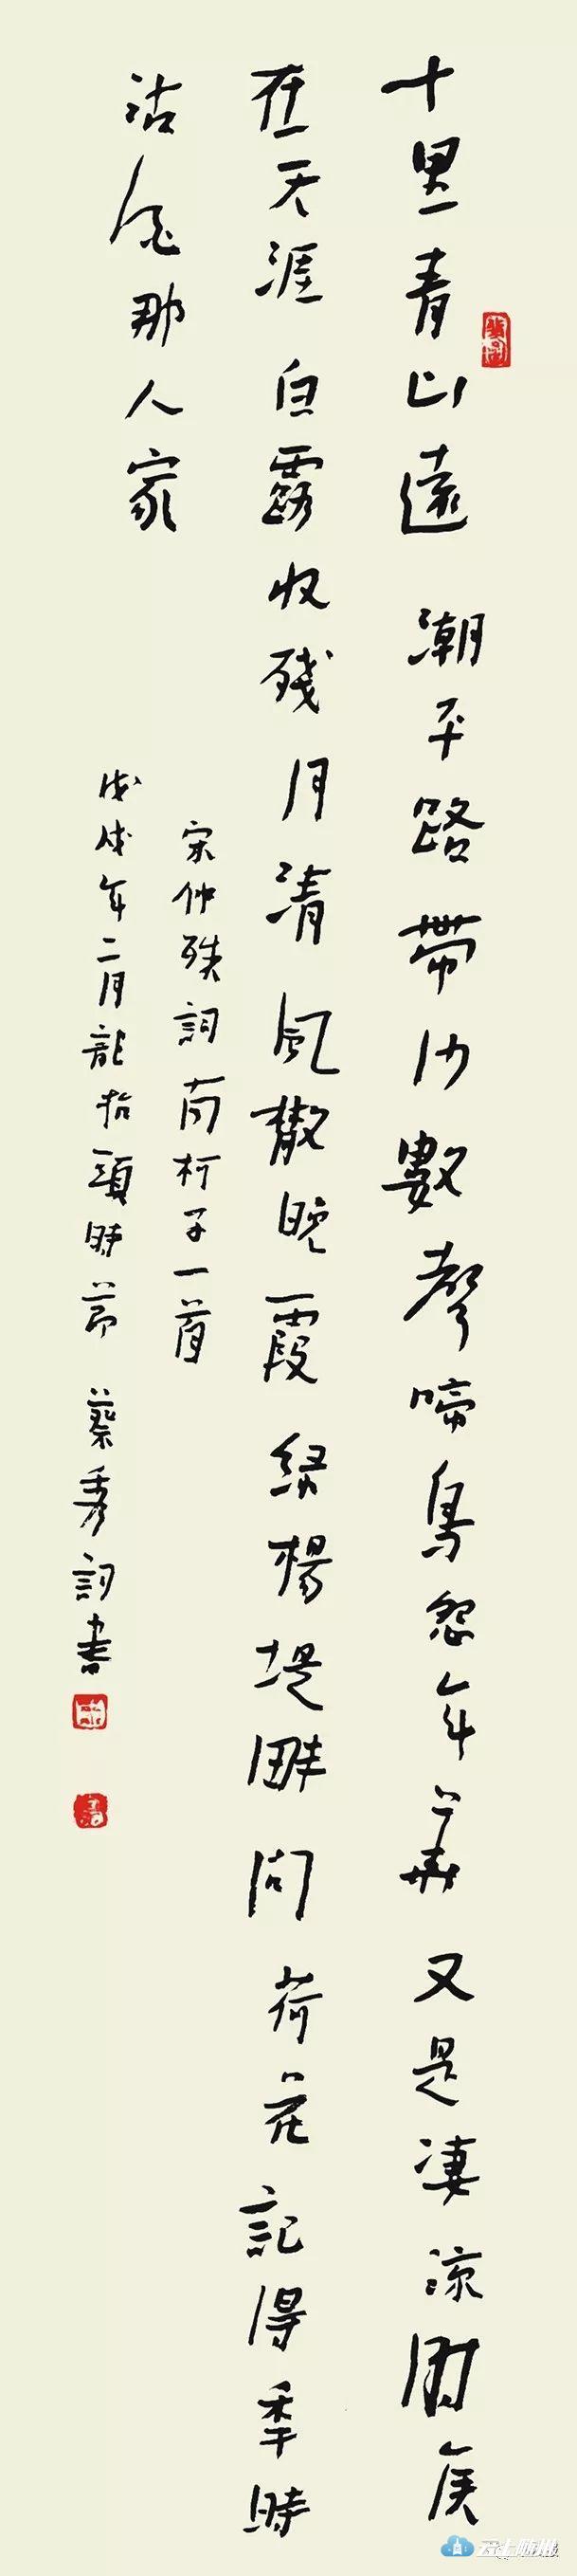 十里青山遠 潮平路帶沙數聲啼鳥怨年華 又是凄涼時候
在天涯 白露收殘月清風散晚霞 綠楊堤畔問荷花記得秊時
沽酒那人家
宋仲殊詞南柯子一首
戊戌年二月龍抬頭時節 蔡秀詞書
云上随州